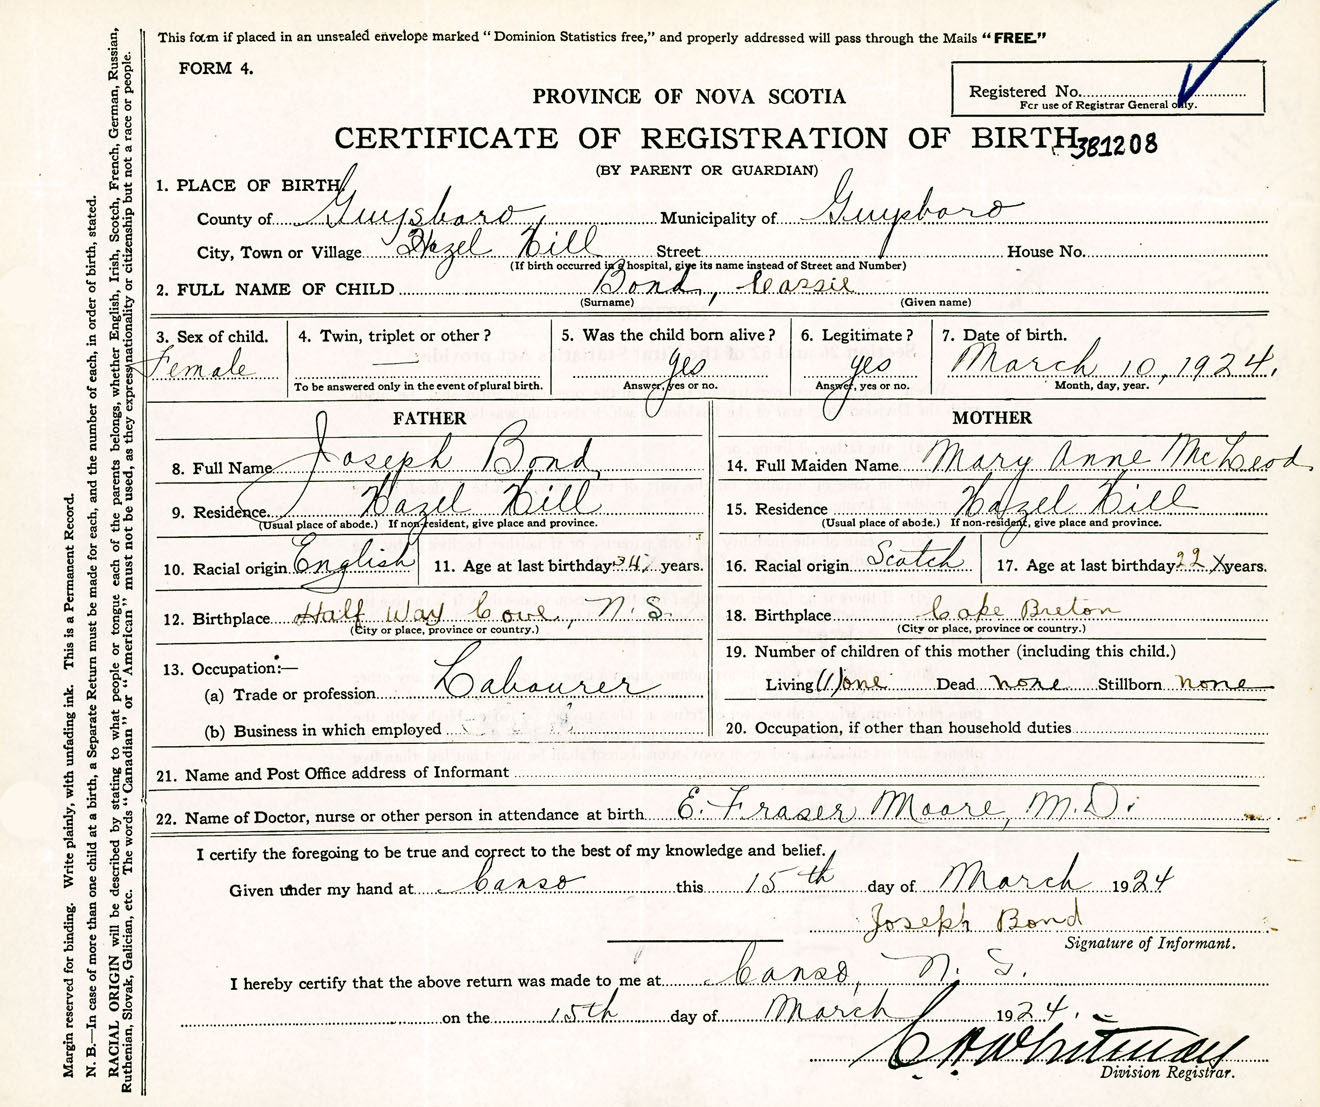 This form if placed in an unsealed envelope marked "Dominion Statistics free," and properly addressed will pass through the Mails "FREE."
FORM 4.
Registered No.
For use of Registrar General only.
PROVINCE OF NOVA SCOTIA
CERTIFICATE OF REGISTRATION OF BIRTH
381208
(BY PARENT OR GUARDIAN)
1. PLACE OF BIRTH
County of Guysboro, Municipality of Guysboro
City, Town or Village Hazel Hill Street House No.
(If birth occurred in a hospital, give its name instead of Street and Number)
2. FULL NAME OF CHILD Bond, Cassie
(Surname) (Given name)
3. Sex of child. 4. Twin, triplet or other? 5. Was the child born alive? 6. Legitimate? 7. Date of birth.
Female — yes yes March 10, 1924.
To be answered only in the event of plural birth. Answer, yes or no. Answer, yes or no. Month, day, year.
FATHER
8. Full Name Joseph Bond
9. Residence Hazel Hill
(Usual place of abode.) If non-resident, give place and province.
10. Racial origin English 11. Age at last birthday 34 years.
12. Birthplace Half Way Cove, N.S.
(City or place, province or country.)
13. Occupation:—
(a) Trade or profession Labourer
(b) Business in which employed
MOTHER
14. Full Maiden Name Mary Anne McLeod
15. Residence Hazel Hill
(Usual place of abode.) If non-resident, give place and province.
16. Racial origin Scotch 17. Age at last birthday 22 X years.
18. Birthplace Cape Breton
(City or place, province or country.)
19. Number of children of this mother (including this child.)
Living (1) one Dead none Stillborn none
20. Occupation, if other than household duties
21. Name and Post Office address of Informant
22. Name of Doctor, nurse or other person in attendance at birth E. Fraser Moore, M.D.
I certify the foregoing to be true and correct to the best of my knowledge and belief.
Given under my hand at Canso this 15th day of March 1924
Joseph Bond
Signature of Informant.
I hereby certify that the above return was made to me at Canso, N. S.
on the 15th day of March 1924.
C. H. Whitman
Division Registrar.
Margin reserved for binding. Write plainly, with unfading ink. This is a Permanent Record.
N. B.—In case of more than one child at a birth, a Separate Return must be made for each, and the number of each, in order of birth, stated.
RACIAL ORIGIN will be described by stating to what people or tongue each of the parents belongs, whether English, Irish, Scotch, French, German, Russian,
Ruthenian, Slovak, Galician, etc. The words "Canadian" or "American" must not be used, as they express nationality or citizenship but not a race or people.